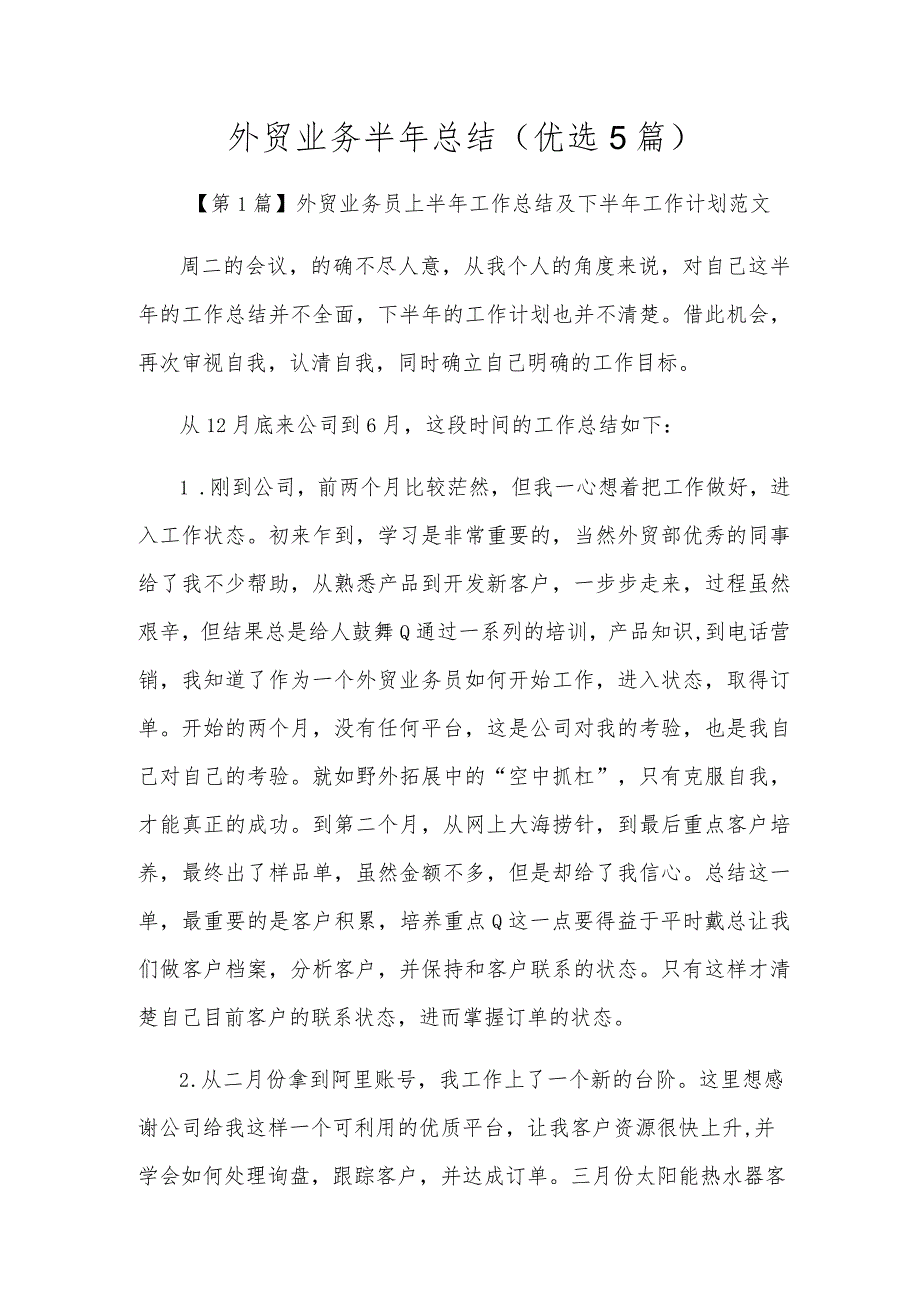 外贸业务半年总结（优选5篇）
【第1篇】外贸业务员上半年工作总结及下半年工作计划范文
周二的会议，的确不尽人意，从我个人的角度来说，对自己这半
年的工作总结并不全面，下半年的工作计划也并不清楚。借此机会，
再次审视自我，认清自我，同时确立自己明确的工作目标。
从12月底来公司到6月，这段时间的工作总结如下：
1 .刚到公司，前两个月比较茫然，但我一心想着把工作做好，进
入工作状态。初来乍到，学习是非常重要的，当然外贸部优秀的同事
给了我不少帮助，从熟悉产品到开发新客户，一步步走来，过程虽然
艰辛，但结果总是给人鼓舞Q通过一系列的培训，产品知识,到电话营
销，我知道了作为一个外贸业务员如何开始工作，进入状态，取得订
单。开始的两个月，没有任何平台，这是公司对我的考验，也是我自
己对自己的考验。就如野外拓展中的“空中抓杠”，只有克服自我，
才能真正的成功。到第二个月，从网上大海捞针，到最后重点客户培
养，最终出了样品单，虽然金额不多，但是却给了我信心。总结这一
单，最重要的是客户积累，培养重点Q这一点要得益于平时戴总让我
们做客户档案，分析客户，并保持和客户联系的状态。只有这样才清
楚自己目前客户的联系状态，进而掌握订单的状态。
2.从二月份拿到阿里账号，我工作上了一个新的台阶。这里想感
谢公司给我这样一个可利用的优质平台，让我客户资源很快上升,并
学会如何处理询盘，跟踪客户，并达成订单。三月份太阳能热水器客